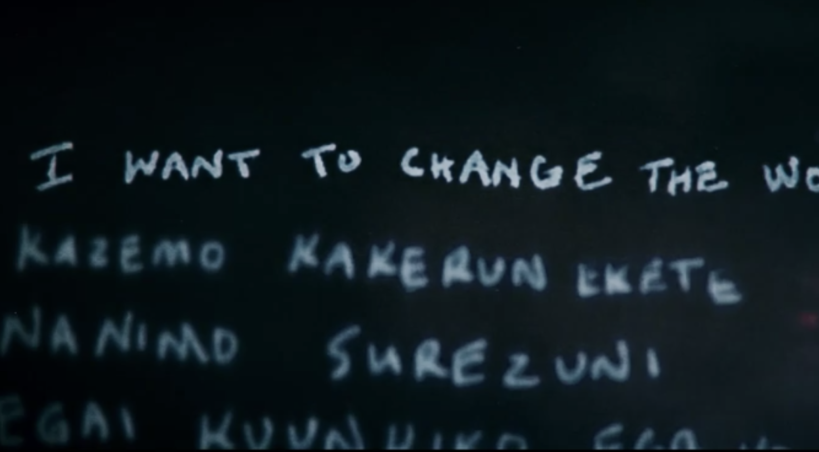 I WANT TO CHANGE THE WO
KAZEMO KAKERUN EKETE
NANIMO SUREZUNI
EGAI